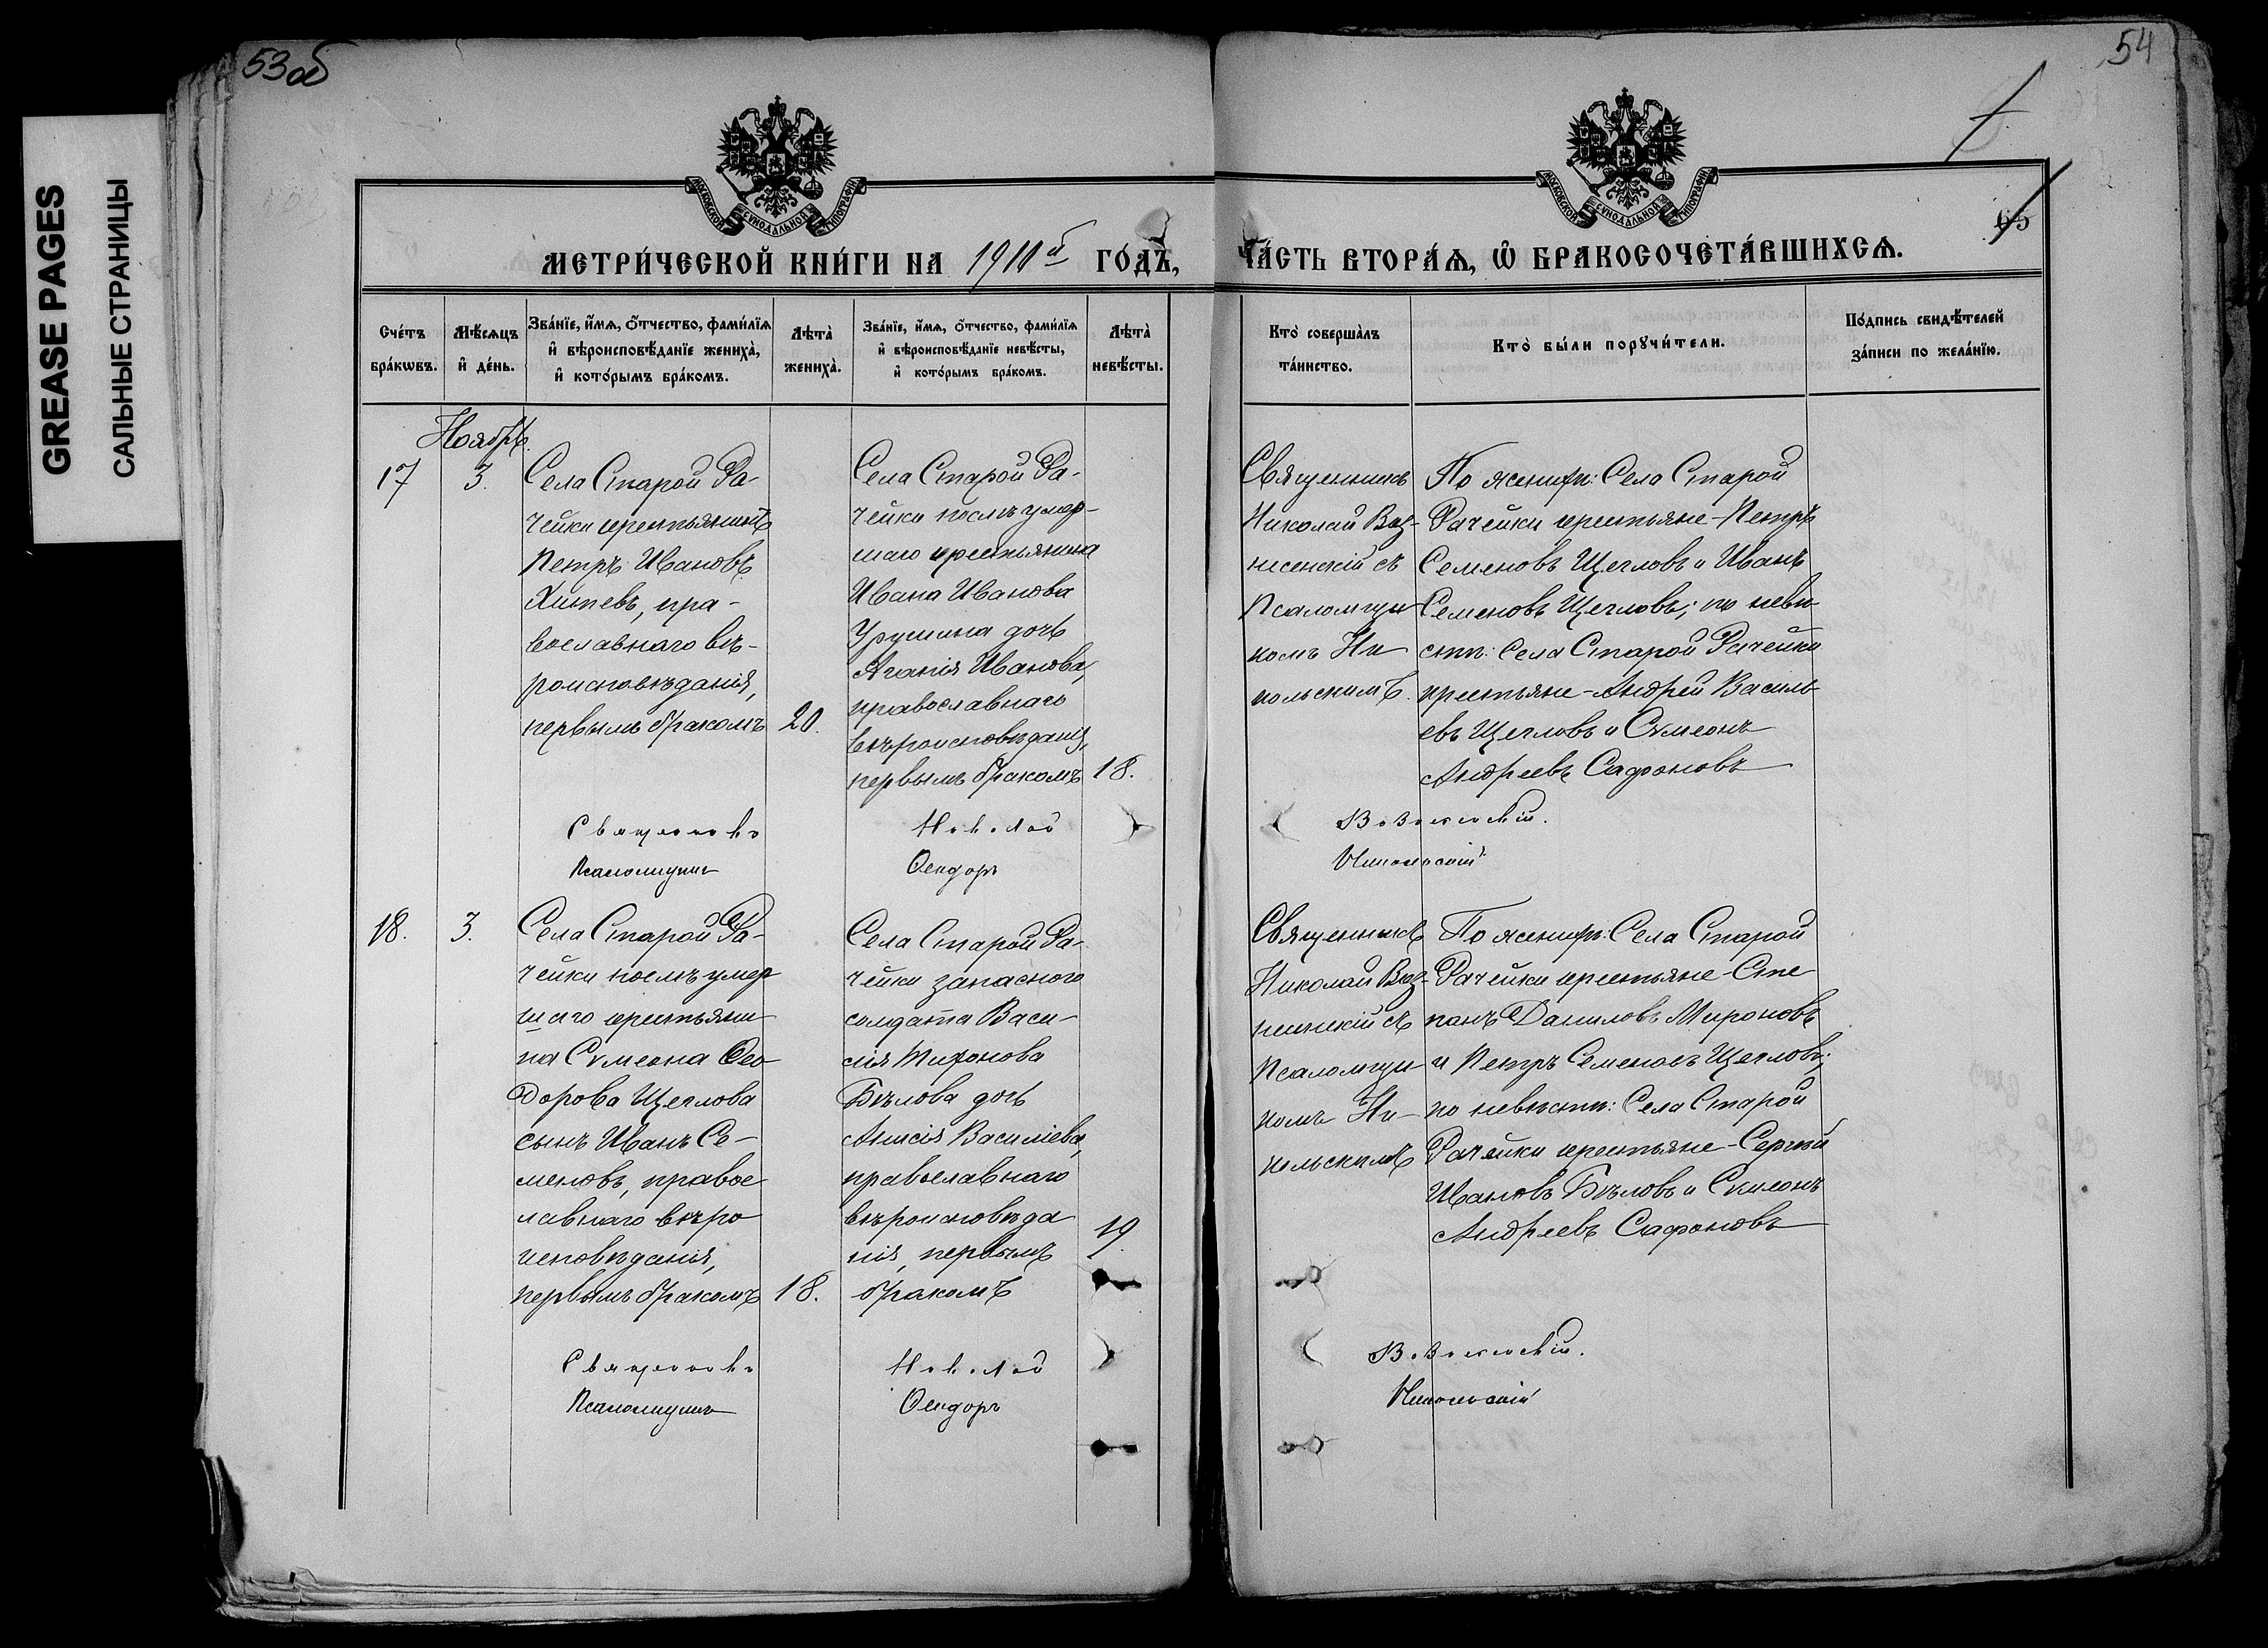 53об
54
GREASE PAGES
САЛЬНЫЕ СТРАНИЦЫ
МОСКОВСКОЙ СѴНОДАЛЬНОЙ ТИПОГРАФІИ
МОСКОВСКОЙ СѴНОДАЛЬНОЙ ТИПОГРАФІИ
65
МЕТРИ́ЧЕСКОЙ КНИ́ГИ НА 1911й ГО́ДЪ, ЧА́СТЬ ВТОРА́Ѧ, Ѽ БРАКОСОЧЕТА́ВШИХСѦ.
Сче́тъ
бра́кѡвъ.
Мѣ́сѧцъ
и҆ де́нь.
Зва́нїе, и҆́мѧ, ѻ҆́тчество, фами́лїѧ
и҆ вѣроисповѣ́данїе жениха̀,
и҆ кото́рымъ бра́комъ.
Лѣта̀
жениха̀.
Зва́нїе, и҆́мѧ, ѻ҆́тчество, фами́лїѧ
и҆ вѣроисповѣ́данїе невѣ́сты,
и҆ кото́рымъ бра́комъ.
Лѣта̀
невѣ́сты.
Кто̀ соверша́лъ
та́инство.
Кто̀ бы́ли порꙋчи́тели.
По́дпись свидѣ́телей
за́писи по жела́нїю.
Ноябрь.
17
3.
Села Старой Ра-
чейки крестьянинъ
Петръ Ивановъ
Хитевъ, пра-
вославнаго вѣ-
роисповѣданія,
первымъ бракомъ
20.
Села Старой Ра-
чейки послѣ умер-
шаго крестьянина
Ивана Иванова
Урусина дочь
Агапія Иванова,
православнаго
вѣроисповѣданія,
первымъ бракомъ
18.
Священникъ
Николай Воз-
несенскій съ
Псаломщи-
комъ Ни-
кольскимъ.
По женихѣ: Села Старой
Рачейки крестьяне - Петръ
Семеновъ Щегловъ и Иванъ
Семеновъ Щегловъ; по невѣ-
стѣ: Села Старой Рачейки
крестьяне - Андрей Василь-
евъ Щегловъ и Сѵмеонъ
Андреевъ Сафоновъ
Священникъ Николай Вознесенскій.
Псаломщикъ Ѳеодоръ Никольскій
18.
3.
Села Старой Ра-
чейки послѣ умер
шаго крестьяни-
на Сѵмеона Ѳео-
дорова Щеглова
сынъ Иванъ Се-
меновъ, правос
лавнаго вѣро
исповѣданія,
первымъ бракомъ
18.
Села Старой Ра-
чейки запаснаго
солдата Васи-
лія Тихонова
Бѣлова дочь
Анисія Василіева,
православнаго
вѣроисповѣда
нія, первымъ
бракомъ
19.
Священникъ
Николай Воз-
несенскій съ
Псаломщи-
комъ Ни-
кольскимъ
По женихѣ: Села Старой
Рачейки крестьяне - Сте
панъ Даниловъ Мироновъ
и Петръ Семеновъ Щегловъ;
по невѣстѣ: Села Старой
Рачейки крестьяне - Сергѣй
Ивановъ Бѣловъ и Сѵмеонъ
Андреевъ Сафоновъ
Священникъ Николай Вознесенскій.
Псаломщикъ Ѳеодоръ Никольскій